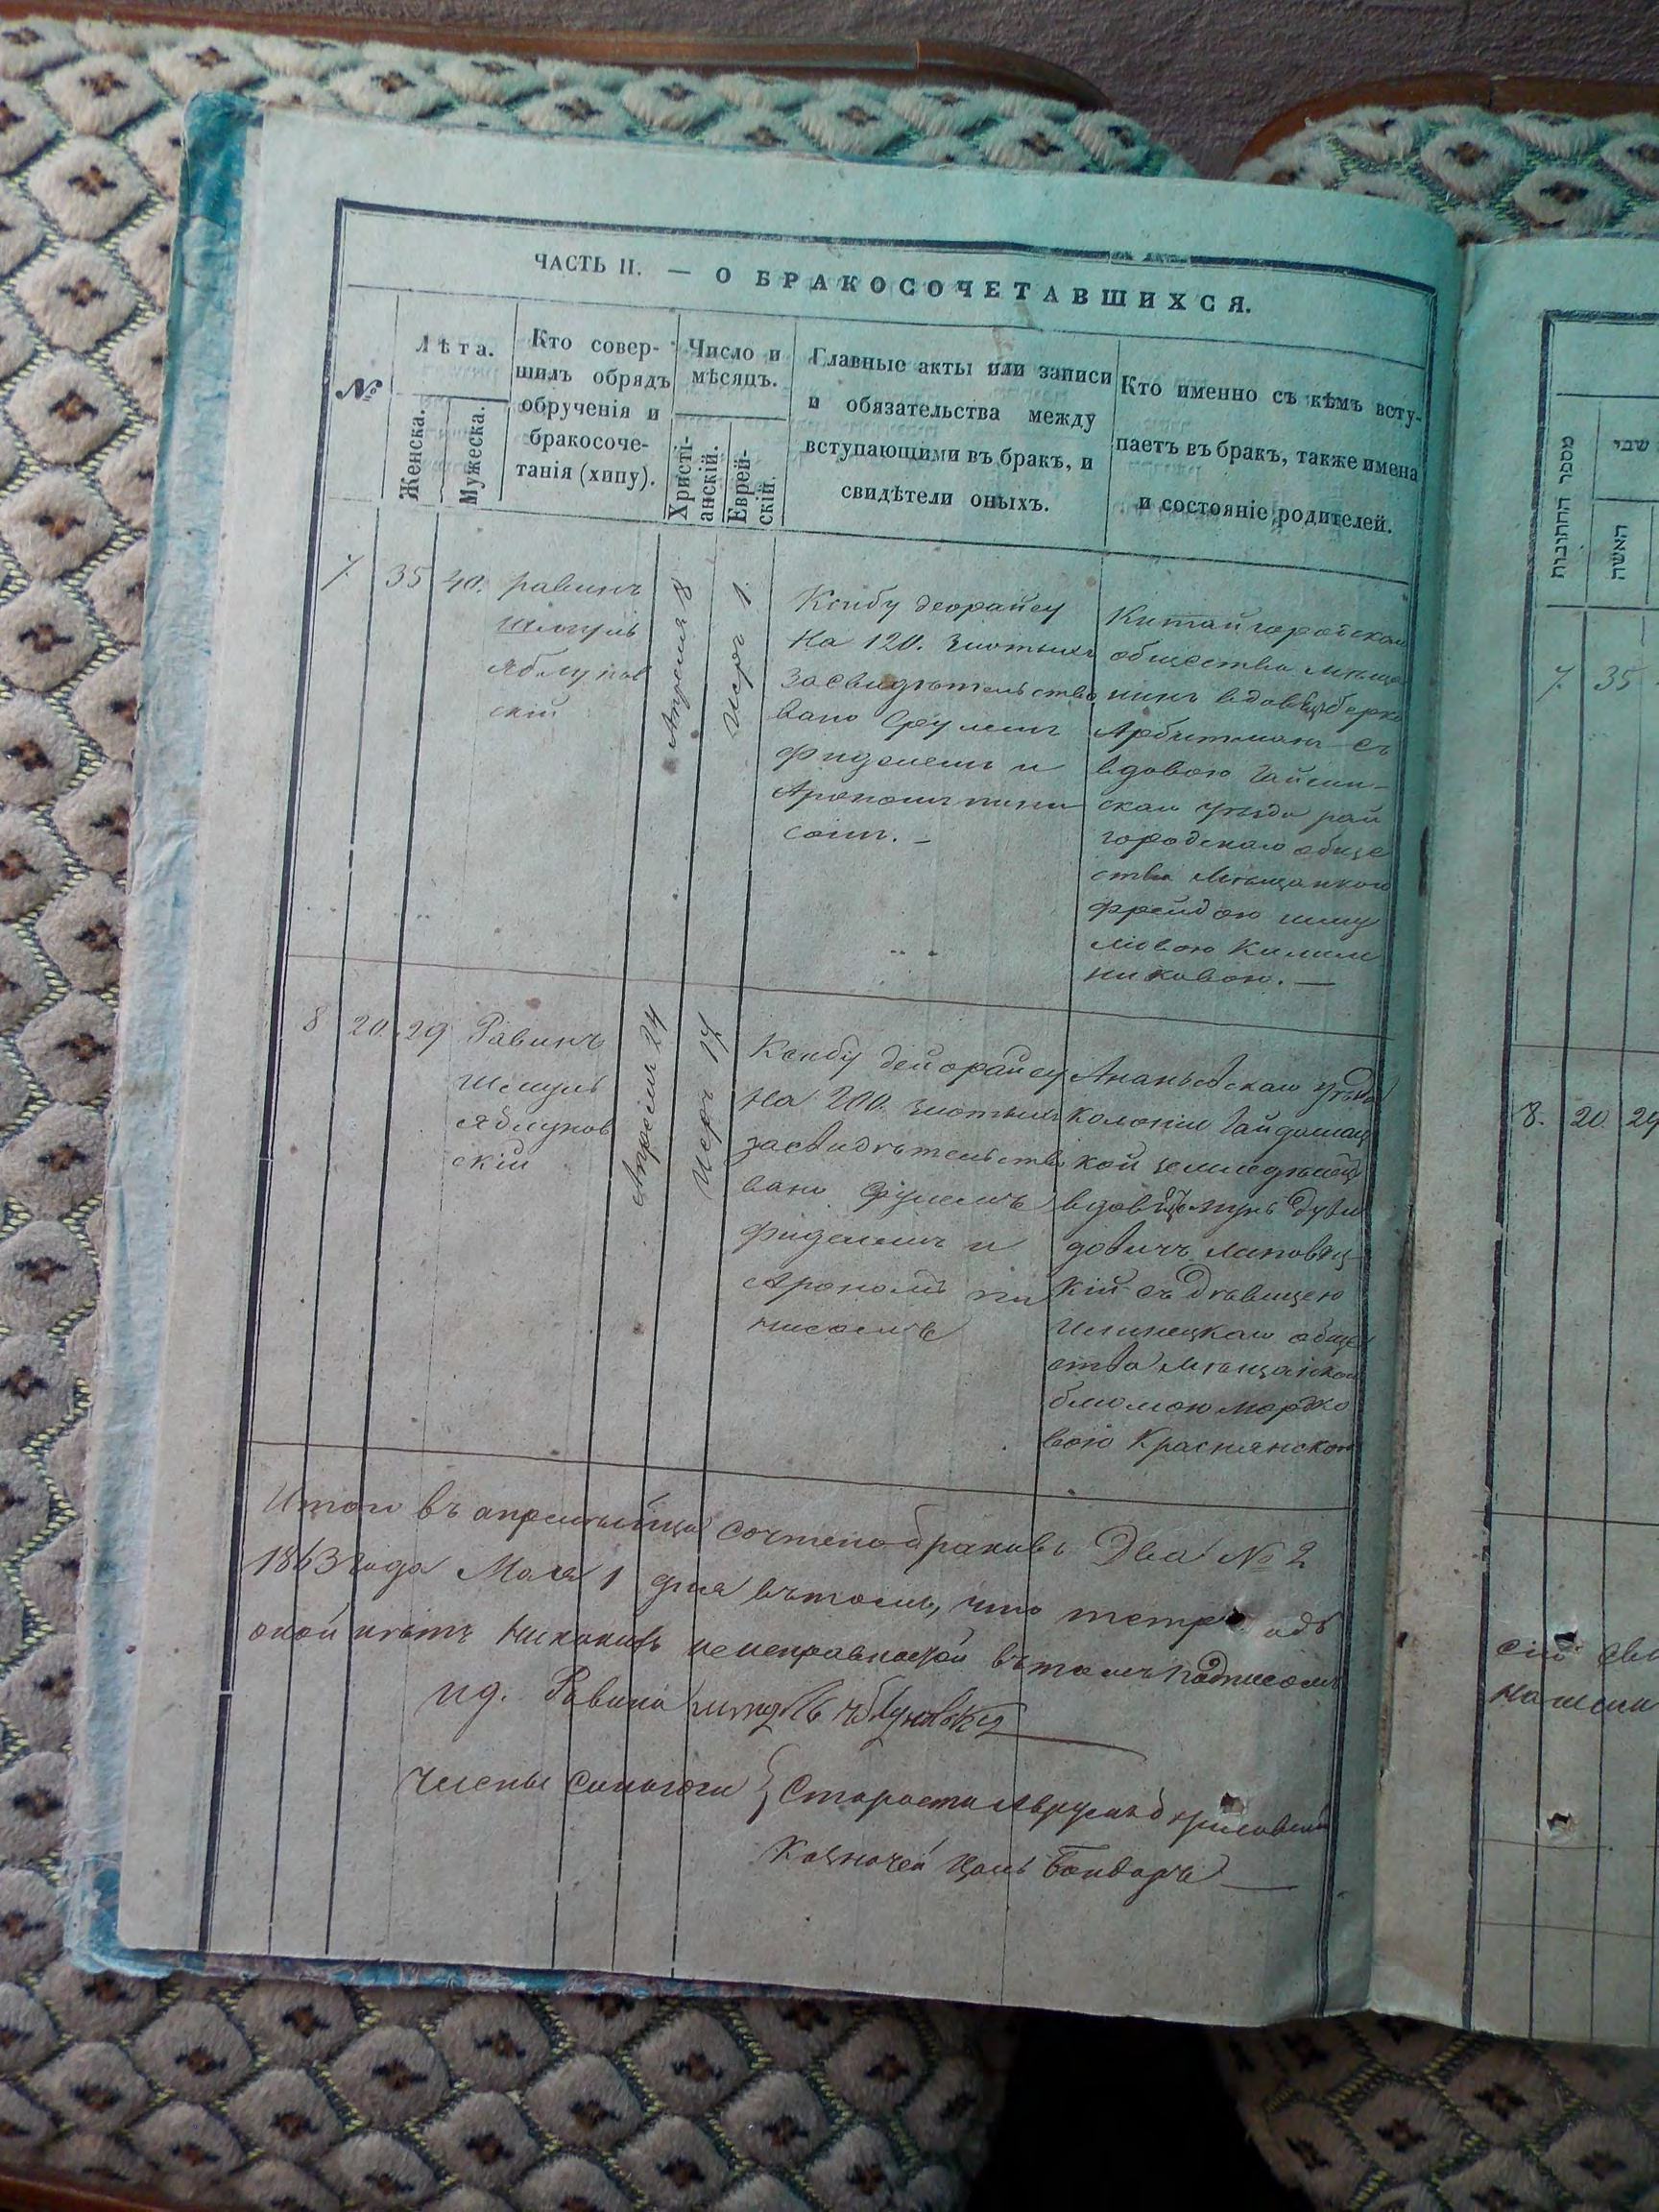 ЧАСТЬ II. — О БРАКОСОЧЕТАВШИХСЯ.
№
Лѣта.
Женска.
Мужеска.
Кто совер-
шилъ обрядъ
обрученія и
бракосоче-
танія (хипу).
Число и
мѣсяцъ.
Христі-
анскій.
Еврей-
скій.
Главные акты или записи
и обязательства между
вступающими въ бракъ, и
свидѣтели оныхъ.
Кто именно съ кѣмъ всту-
паетъ въ бракъ, также имена
и состояніе родителей.
7.
35
40.
равинъ
Шмуль
Яблунов
скій
Апреля 8
Иеръ 1.
Ксибу деорайсу
На 120. Злотыхъ
Засвидѣтельство
вано Фрулемъ
Фиделемъ и
Арономъ пини
сомъ. —
Китайгородскаго
общества мѣща
нинъ вдовецъ берко
Арбитманъ съ
вдовою Гайсин-
скаго уѣзда рай
городскаго обще
ства Мѣщанкою
фрейдою шму
лiовою Килим
никовою. —
8
20.
29
Равинъ
Шмуль
Яблунов
скій
Апреля 24
Иеръ 17
Ксибу деиорайсу
На 200. Злотыхъ
засвидѣтельство
вано Фрулемъ
Фиделемъ и
Арономъ пи
нисомъ
Ананьевскаго уѣзда
колоніи Гайдамац
кой земледѣлец
вдовецъ
довичъ Липовец
кій съ Дѣвицею
Илинецкаго обще
ства Мѣщанкою
блюмою мордко
вою Краснянскою
Итого въ апреле месяце сочтено браковъ Два № 2
1863 года Мая 1 дня въ томъ, что тетрадь
оной нѣтъ никакихъ неисправностей въ томъ подписомъ
ид. Равина Шмуль Яблуновскій
Члены синагоги } Староста
Казначей Цаль Бондарь —
מספר החתונות
שני
האשה
7.
35
8.
20
29